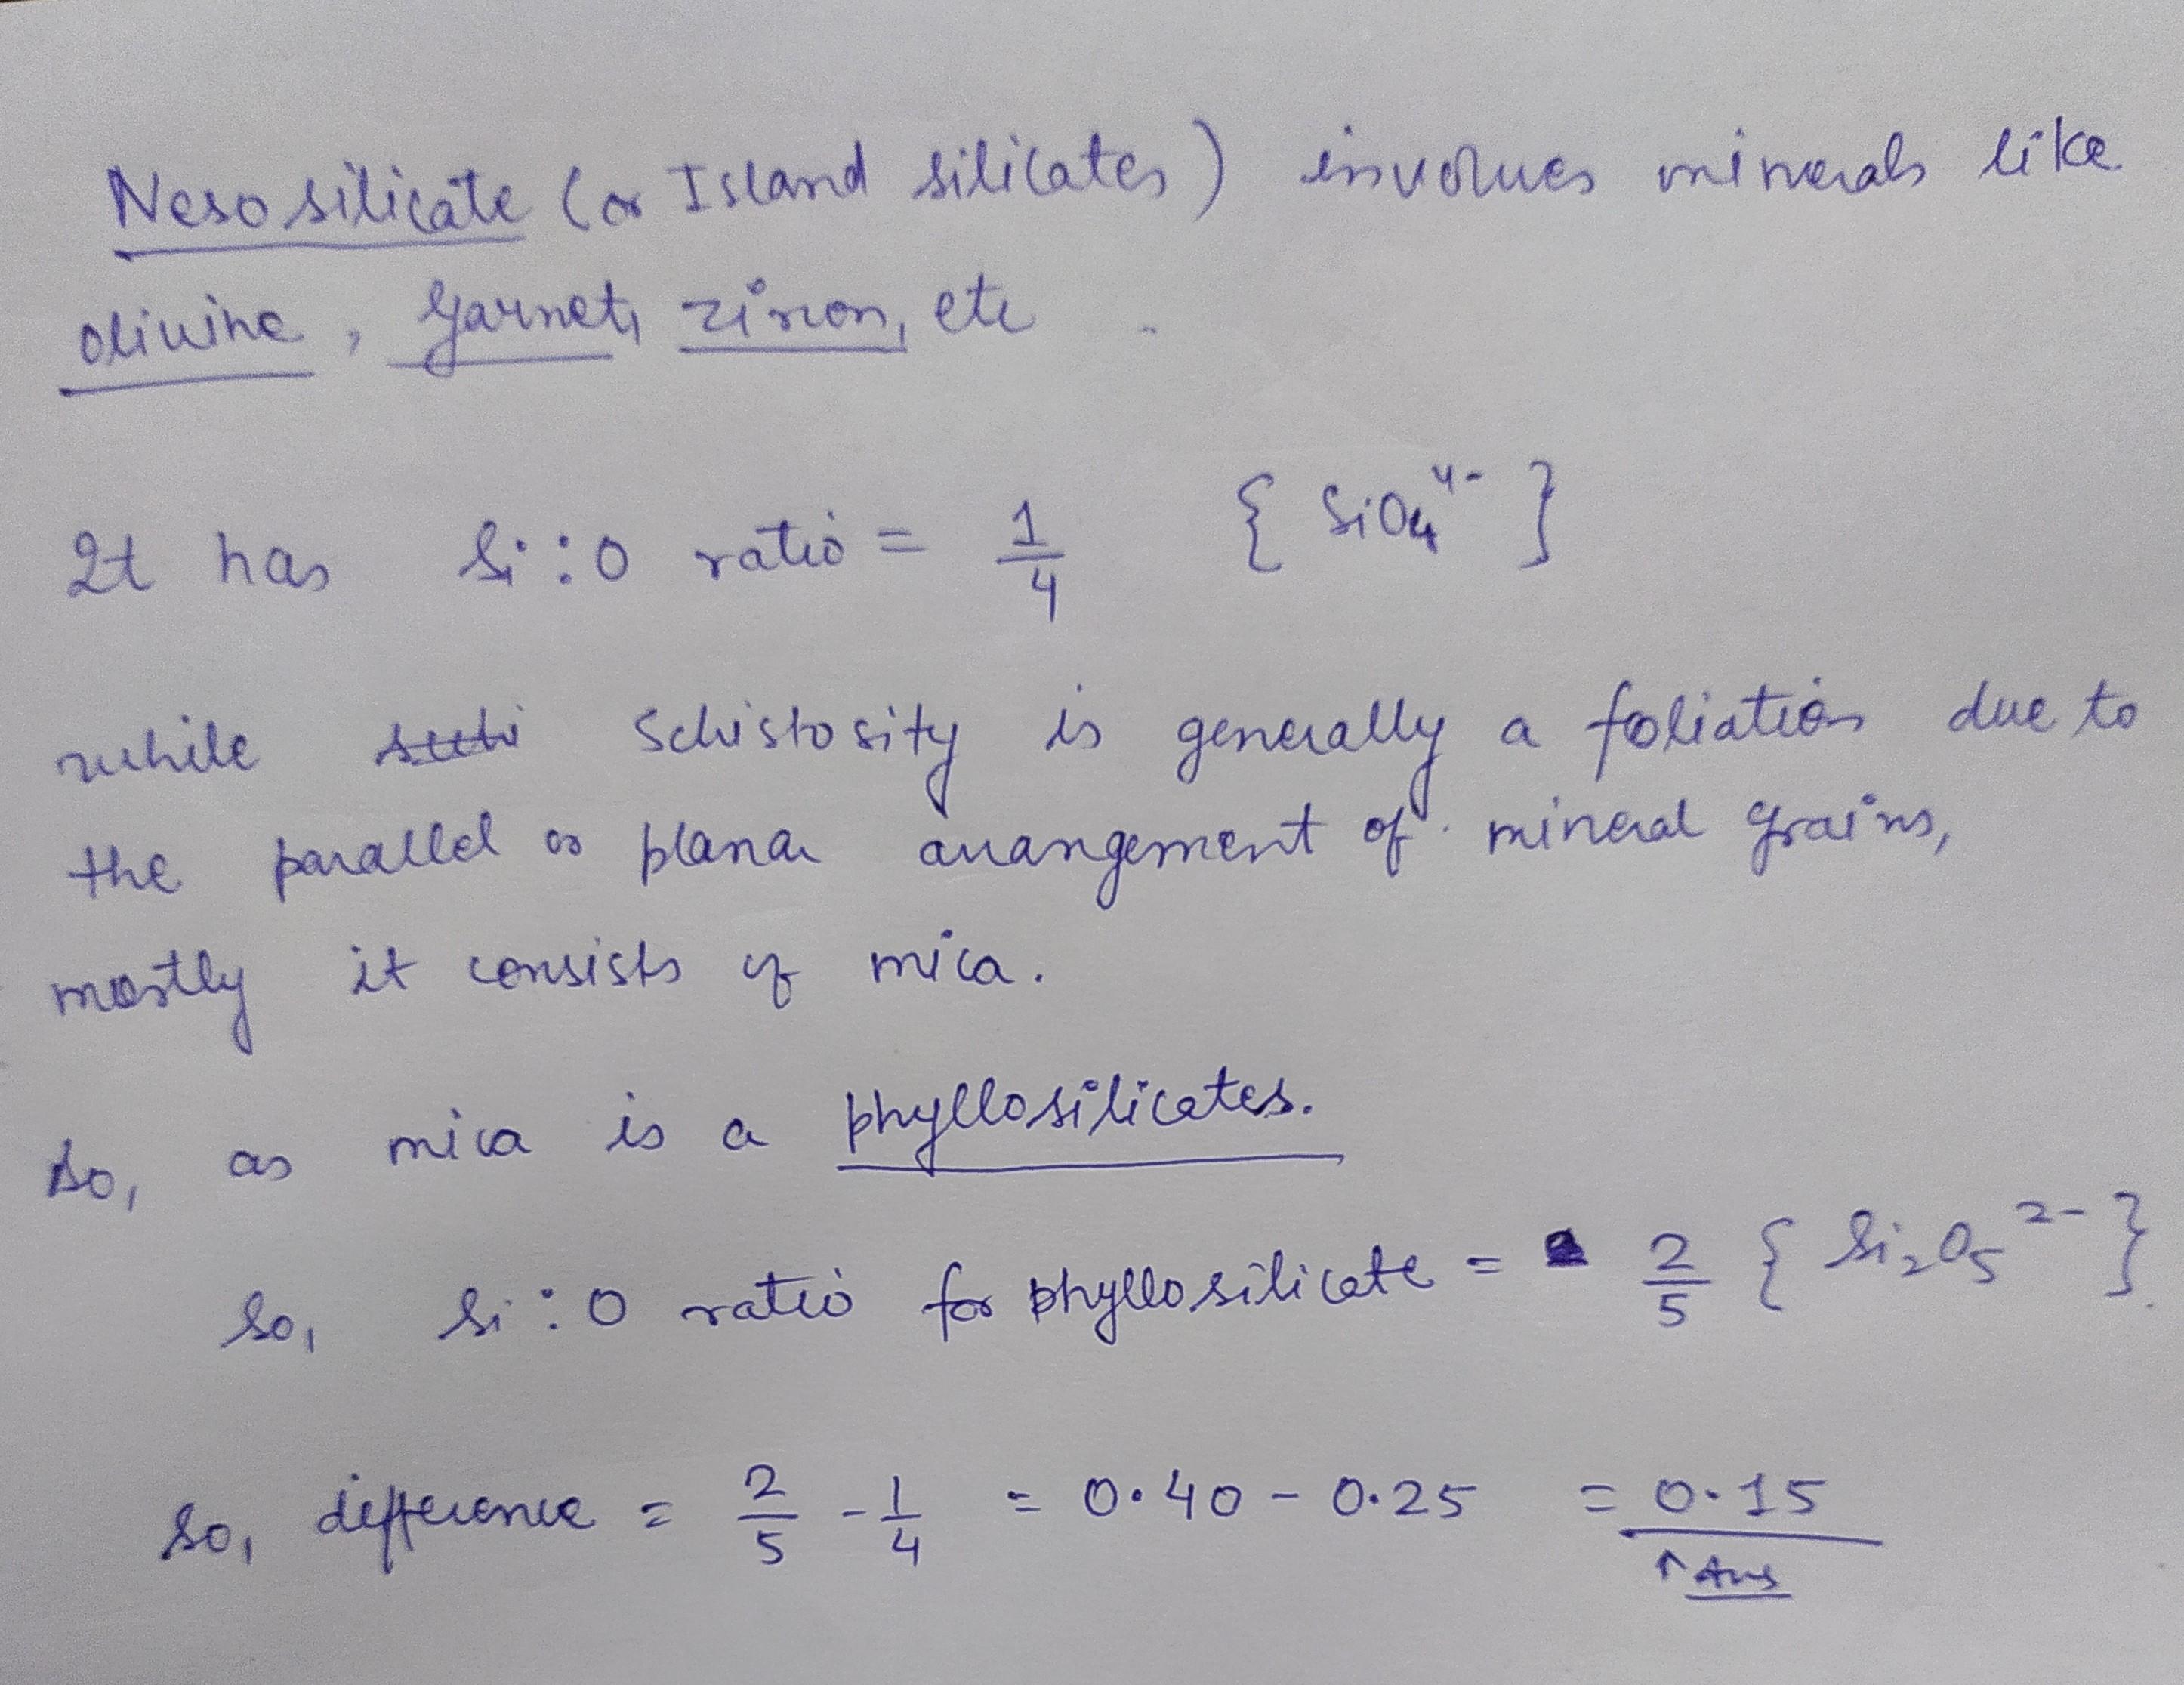 Nesosilicate (or Island silicates) involves minerals like
olivine, garnet, zircon, etc
It has Si:O ratio = 1/4 { SiO₄⁴⁻ }
while Schistosity is generally a foliation due to
the parallel or planar arrangement of mineral grains,
mostly it consists of mica.
So, as mica is a phyllosilicates.
So, Si:O ratio for phyllosilicate = 2/5 { Si₂O₅²⁻ }
So, difference = 2/5 - 1/4 = 0.40 - 0.25 = 0.15
↑ Ans